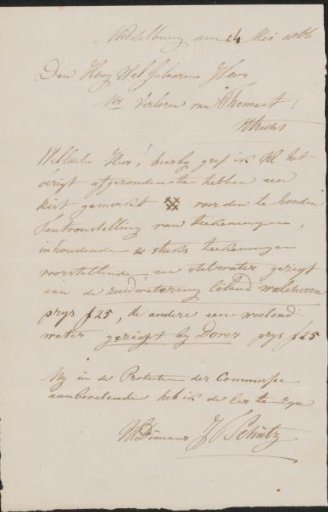 Middelburg den 24 Mei 1866
Den Hoog Wel Geboren Heer
Mr Verloren van Themaat
Utrecht
WelEdele Heer! hierby geef ik UE het
berigt afgezonden te hebben een
kist gemerkt voor den te houden
tentoonstelling van teekeningen,
inhoudende 2 stuks teekeningen
voorstellende, een stilwater gezigt
aan de zuidwatering Eiland walcheren
prys f25, de andere een woelend
water gezigt by Dover prys f25
My in de Protectie der Commissie
aanbevelende heb ik de Eer te zyn
UEDienaar J Schütz